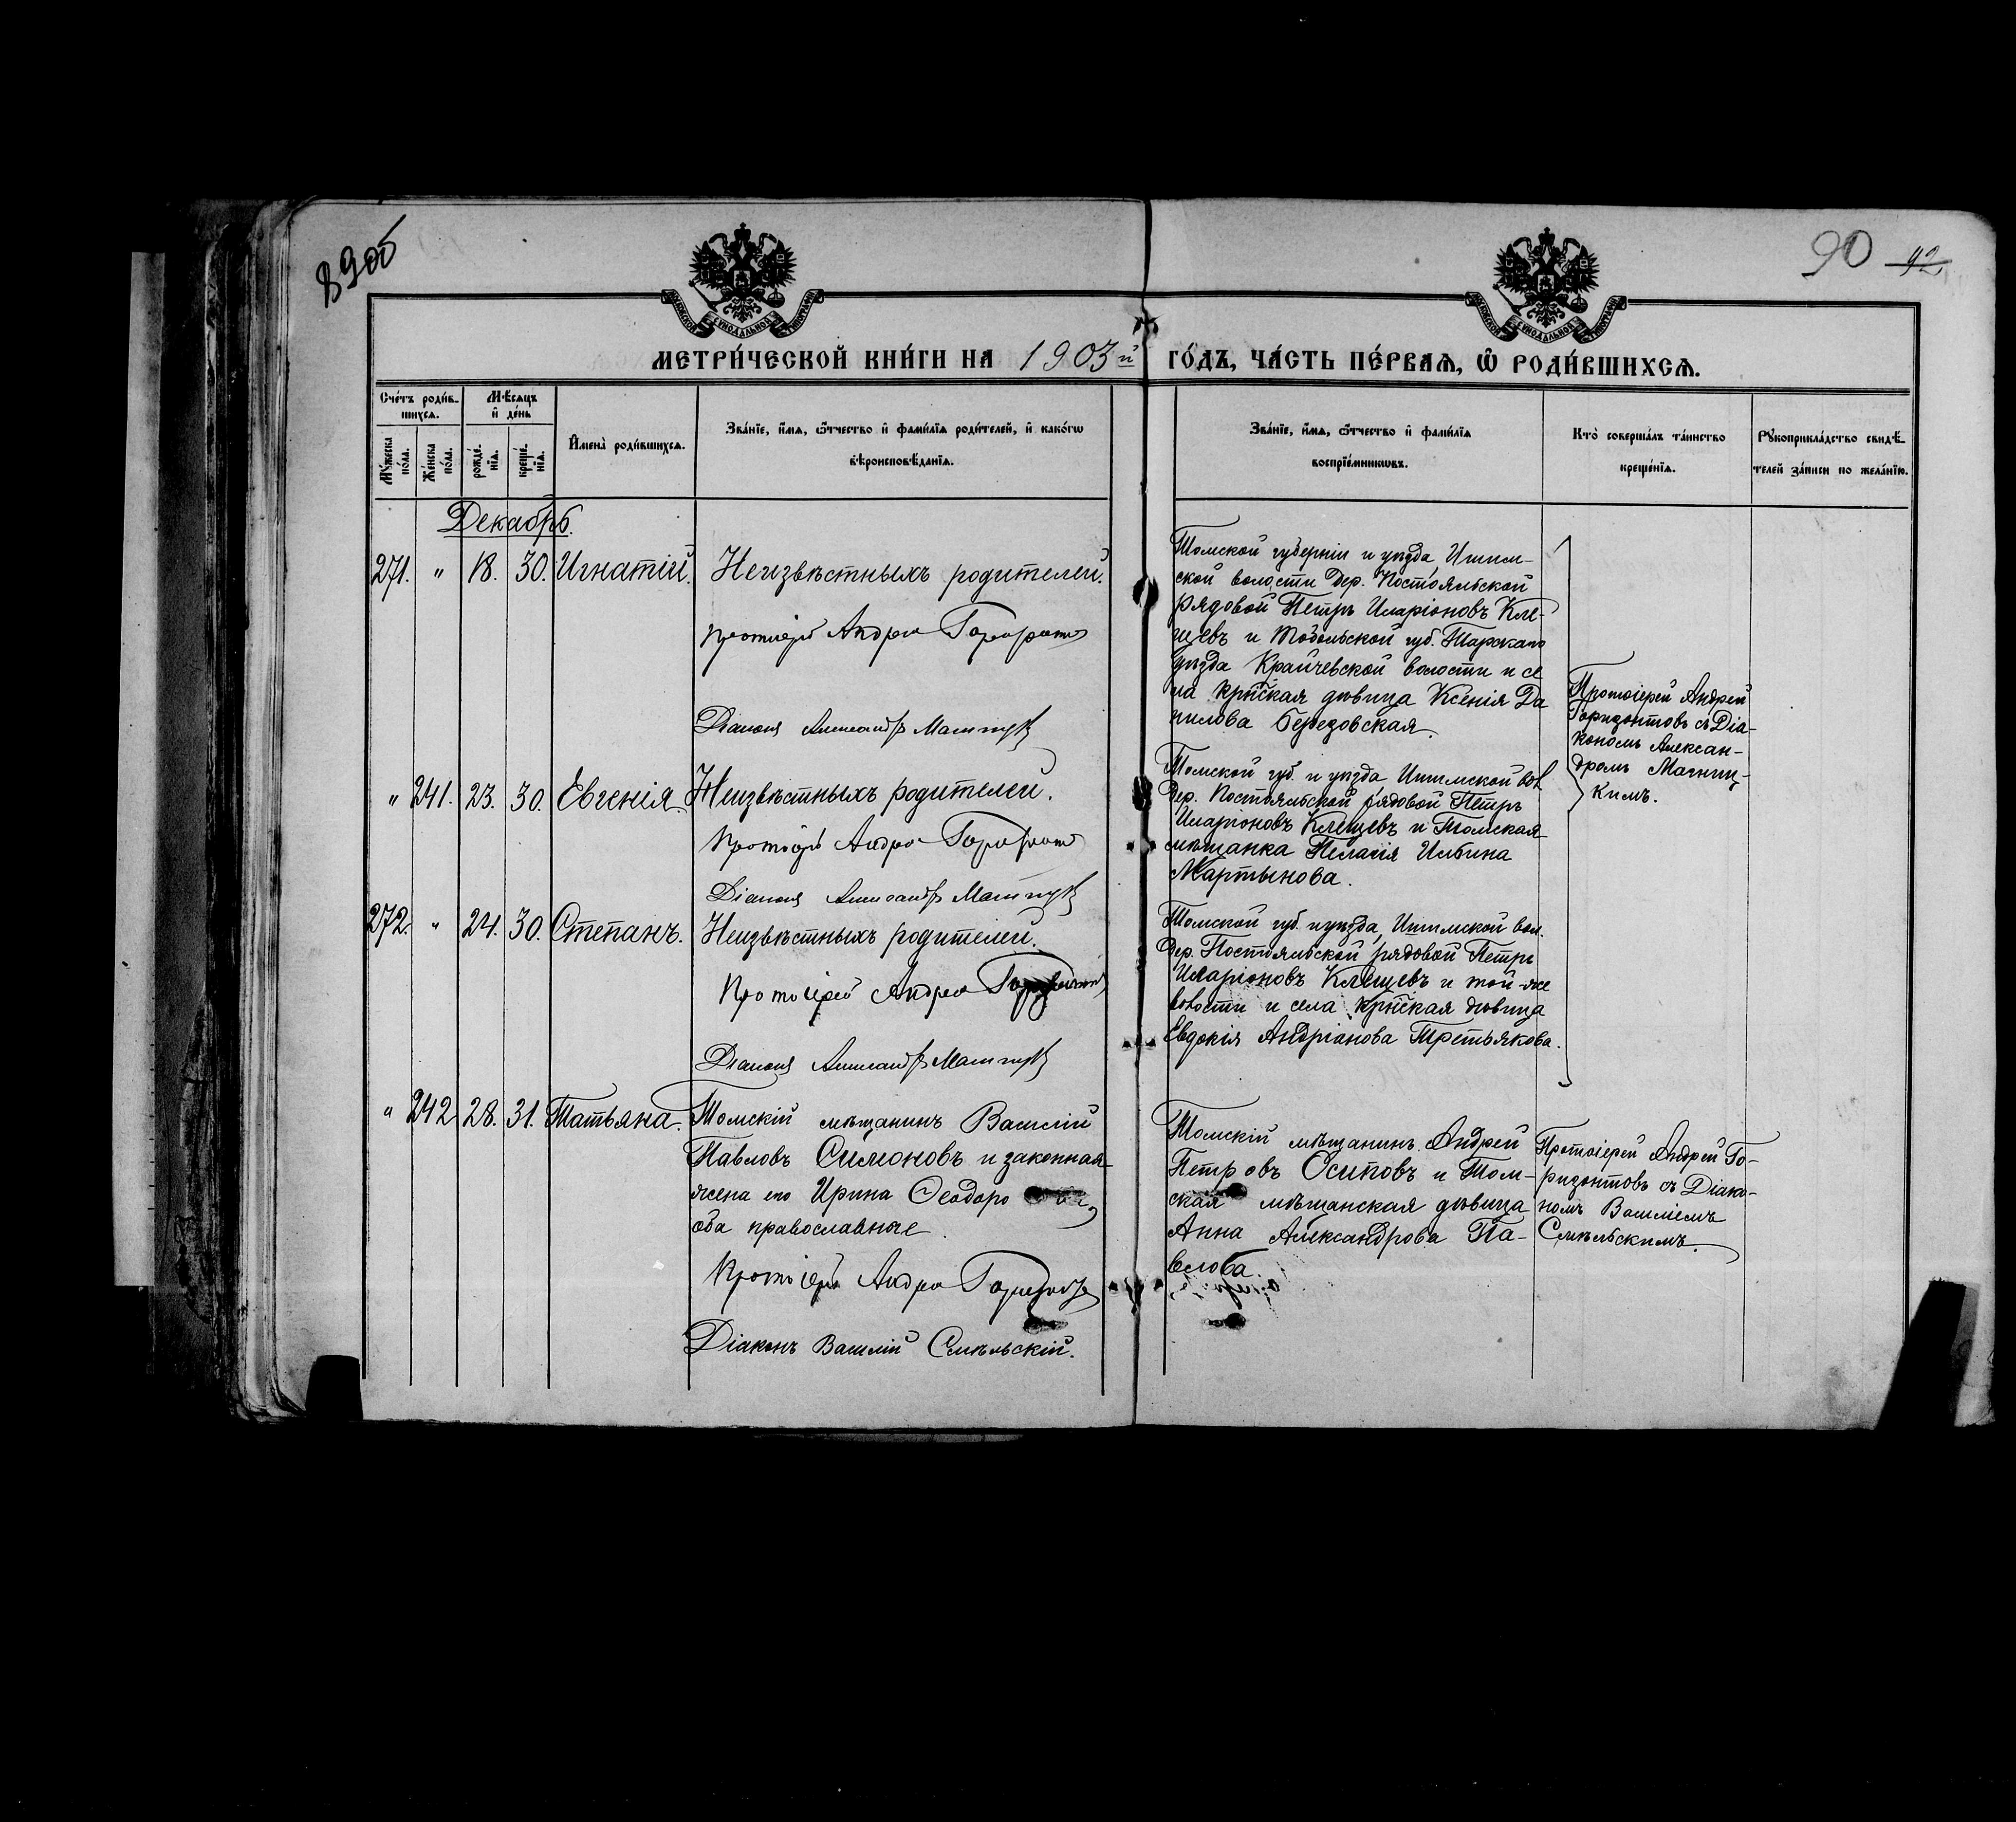 89об
90 92
МЕТРИ́ЧЕСКОЙ КНИ́ГИ НА 1903й ГО́ДЪ, ЧА́СТЬ ПЕ́РВАѦ, Ѡ҆ РОДИ́ВШИХСѦ.
Сче́тъ роди́в-
шихсѧ.
Мѣ́сѧцъ
и҆ де́нь
Мꙋ́жеска по́ла.
Же́нска по́ла.
рожде́-
нїѧ.
креще́-
нїѧ.
И҆мена̀ роди́вшихсѧ.
Зва́нїе, и҆́мѧ, ѻ҆́тчество и҆ фами́лїѧ роди́телей, и҆ како́гѡ
вѣроисповѣ́данїѧ.
Зва́нїе, и҆́мѧ, ѻ҆́тчество и҆ фами́лїѧ
воспрїе́мникѡвъ.
Кто̀ соверша́лъ та́инство
креще́нїѧ.
Рꙋкоприкла́дство свидѣ́-
телей за́писи по жела́нїю.
Декабрь.
271. " 18. 30. Игнатій. Неизвѣстныхъ родителей.
Протоіерей Андрей Горизонтовъ
Діаконъ Александръ Магницкій
Томской губерніи и уѣзда, Ишим-
ской волости дер. Постояльской
рядовой Петръ Иларіоновъ Кле-
щевъ и Тобольской губ. Тарскаго
уѣзда Крайчевской волости и се
ла кр͠тская дѣвица Ксенія Да
нилова Березовская.
Протоіерей Андрей
Горизонтовъ съ Діа-
кономъ Алексан-
дромъ Магниц-
кимъ.
" 241. 23. 30. Евгенія. Неизвѣстныхъ родителей.
Протоіерей Андрей Горизонтовъ
Діаконъ Александръ Магницкій
Томской губ. и уѣзда Ишимской вол
дер. Постояльской рядовой Петръ
Иларіоновъ Клещевъ и Томская
мѣщанка Пелагія Ильина
Мартынова.
272. " 24. 30. Степанъ. Неизвѣстныхъ родителей.
Протоіерей Андрей Горизонтовъ
Діаконъ Александръ Магницкій
Томской губ. и уѣзда, Ишимской вол.
дер. Постояльской рядовой Петръ
Иларіоновъ Клещевъ и той-же
волости и села кр͠тская дѣвица
Евдокія Андріанова Третьякова.
" 242 28. 31. Татьяна. Томскій мѣщанинъ Василій
Павловъ Симоновъ и законная
жена его Ирина Ѳеодоро
оба православные.
Протоіерей Андрей Горизонтовъ
Діаконъ Василій Смѣльскій.
Томскій мѣщанинъ Андрей
Петровъ Осиповъ и Том-
ская мѣщанская дѣвица
Анна Александрова Па-
влова.
Протоіерей Андрей Го-
ризонтовъ съ Діако-
номъ Василіемъ
Смѣльскимъ.